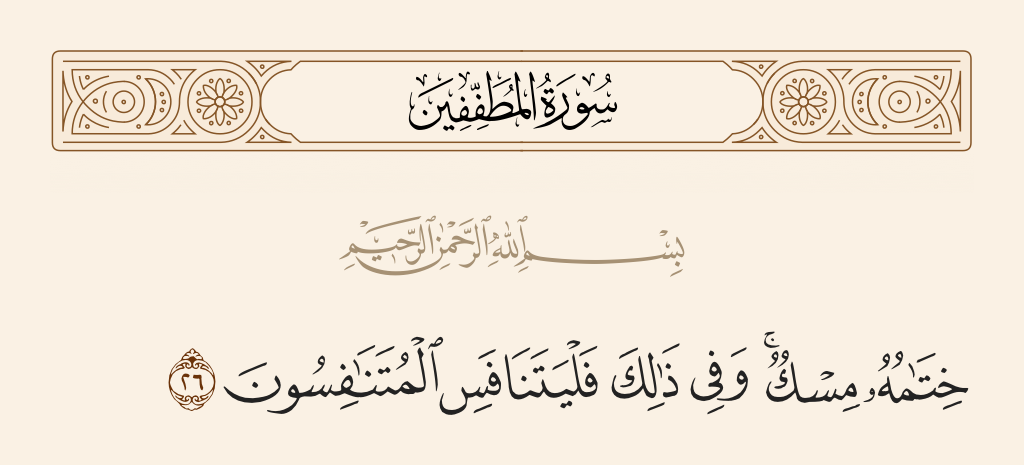 سُورَةُ المُطَفِّفِينَ
بِسْمِ ٱللَّهِ ٱلرَّحْمَٰنِ ٱلرَّحِيمِ
خِتَٰمُهُۥ مِسْكٌۚ وَفِى ذَٰلِكَ فَلْيَتَنَافَسِ ٱلْمُتَنَٰفِسُونَ ٢٦